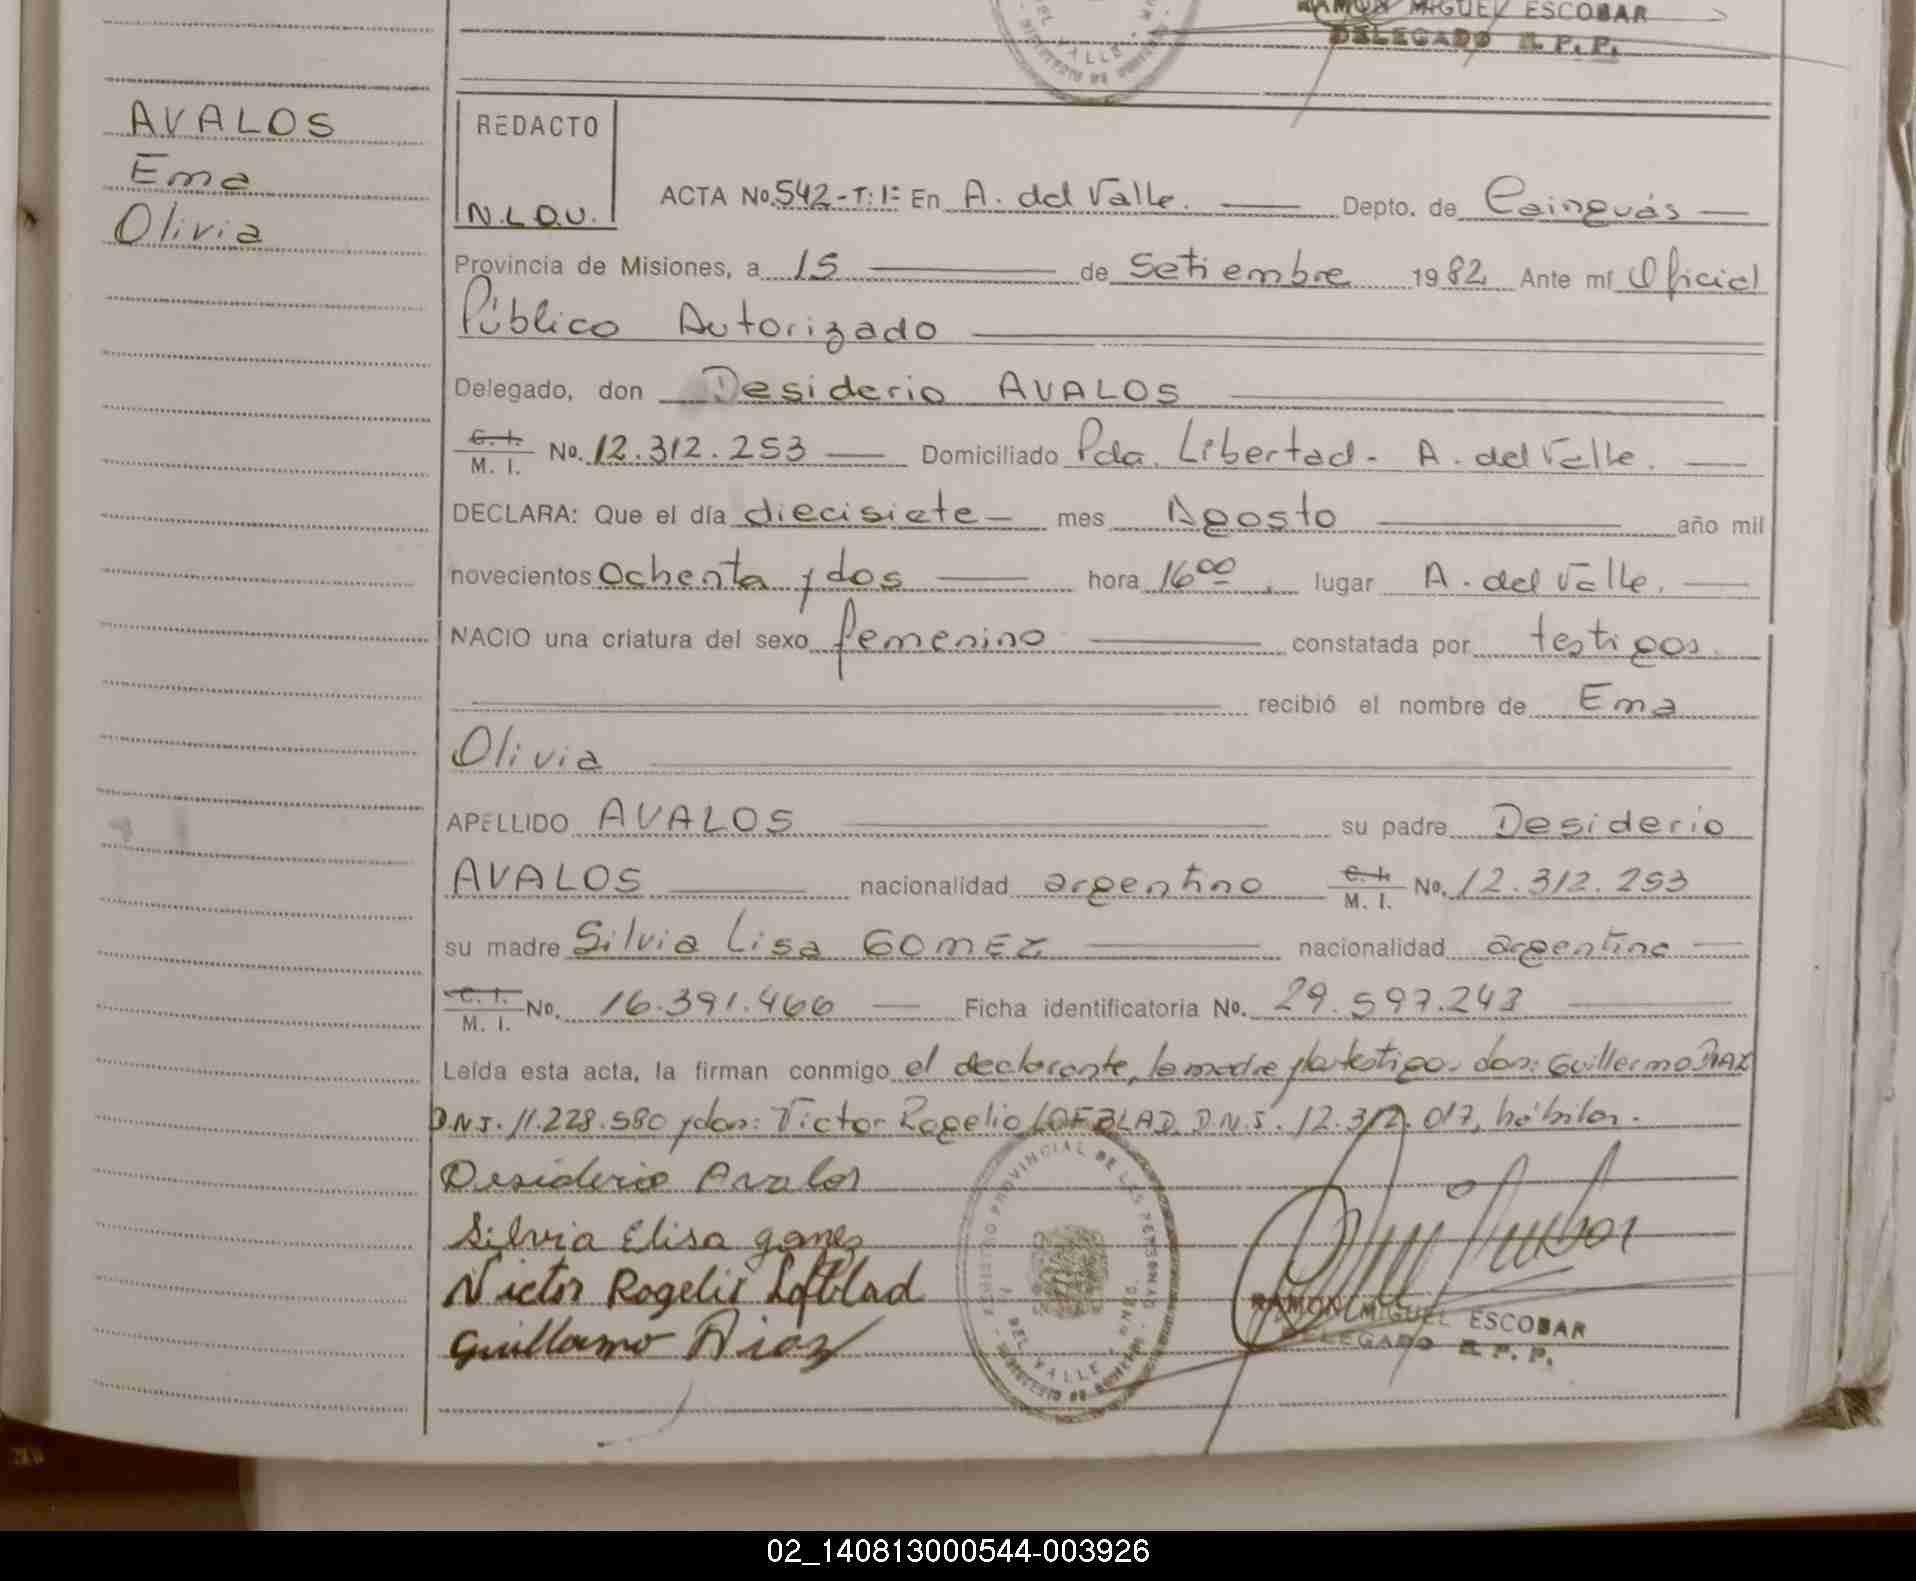 RAMON MIGUEL ESCOBAR
DELEGADO R. P. P.
DEL VALLE
AVALOS
Ema
Olivia
REDACTO
N.L.O.V.
ACTA No. 542-T:1º- En A. del Valle. Depto. de Cainguás
Provincia de Misiones, a 15 de Setiembre 1982 Ante mí Oficial
Público Autorizado
Delegado, don Desiderio AVALOS
C. I. M. I. No. 12.312.253 Domiciliado Pda. Libertad - A. del Valle.
DECLARA: Que el día diecisiete mes Agosto año mil
novecientos Ochenta y dos hora 16:00 lugar A. del Valle.
NACIO una criatura del sexo femenino constatada por testigos.
recibió el nombre de Ema
Olivia
APELLIDO AVALOS su padre Desiderio
AVALOS nacionalidad argentino C. I. M. I. No. 12.312.253
su madre Silvia Lisa GOMEZ nacionalidad argentina
C. I. M. I. No. 16.391.466 Ficha identificatoria No. 29.597.243
Leída esta acta, la firman conmigo el declarante, la madre y los testigos don: Guillermo DIAZ
D.N.I. 11.228.580 y don: Victor Rogelio LOFBLAD D.N.I. 12.312.017, hábiles.
Desiderio Avalos
Silvia Elisa gomez
Victor Rogelio Lofblad
Guillermo Diaz
REGISTRO PROVINCIAL DE LAS PERSONAS
DEL VALLE
RAMON MIGUEL ESCOBAR
DELEGADO R. P. P.
02_140813000544-003926